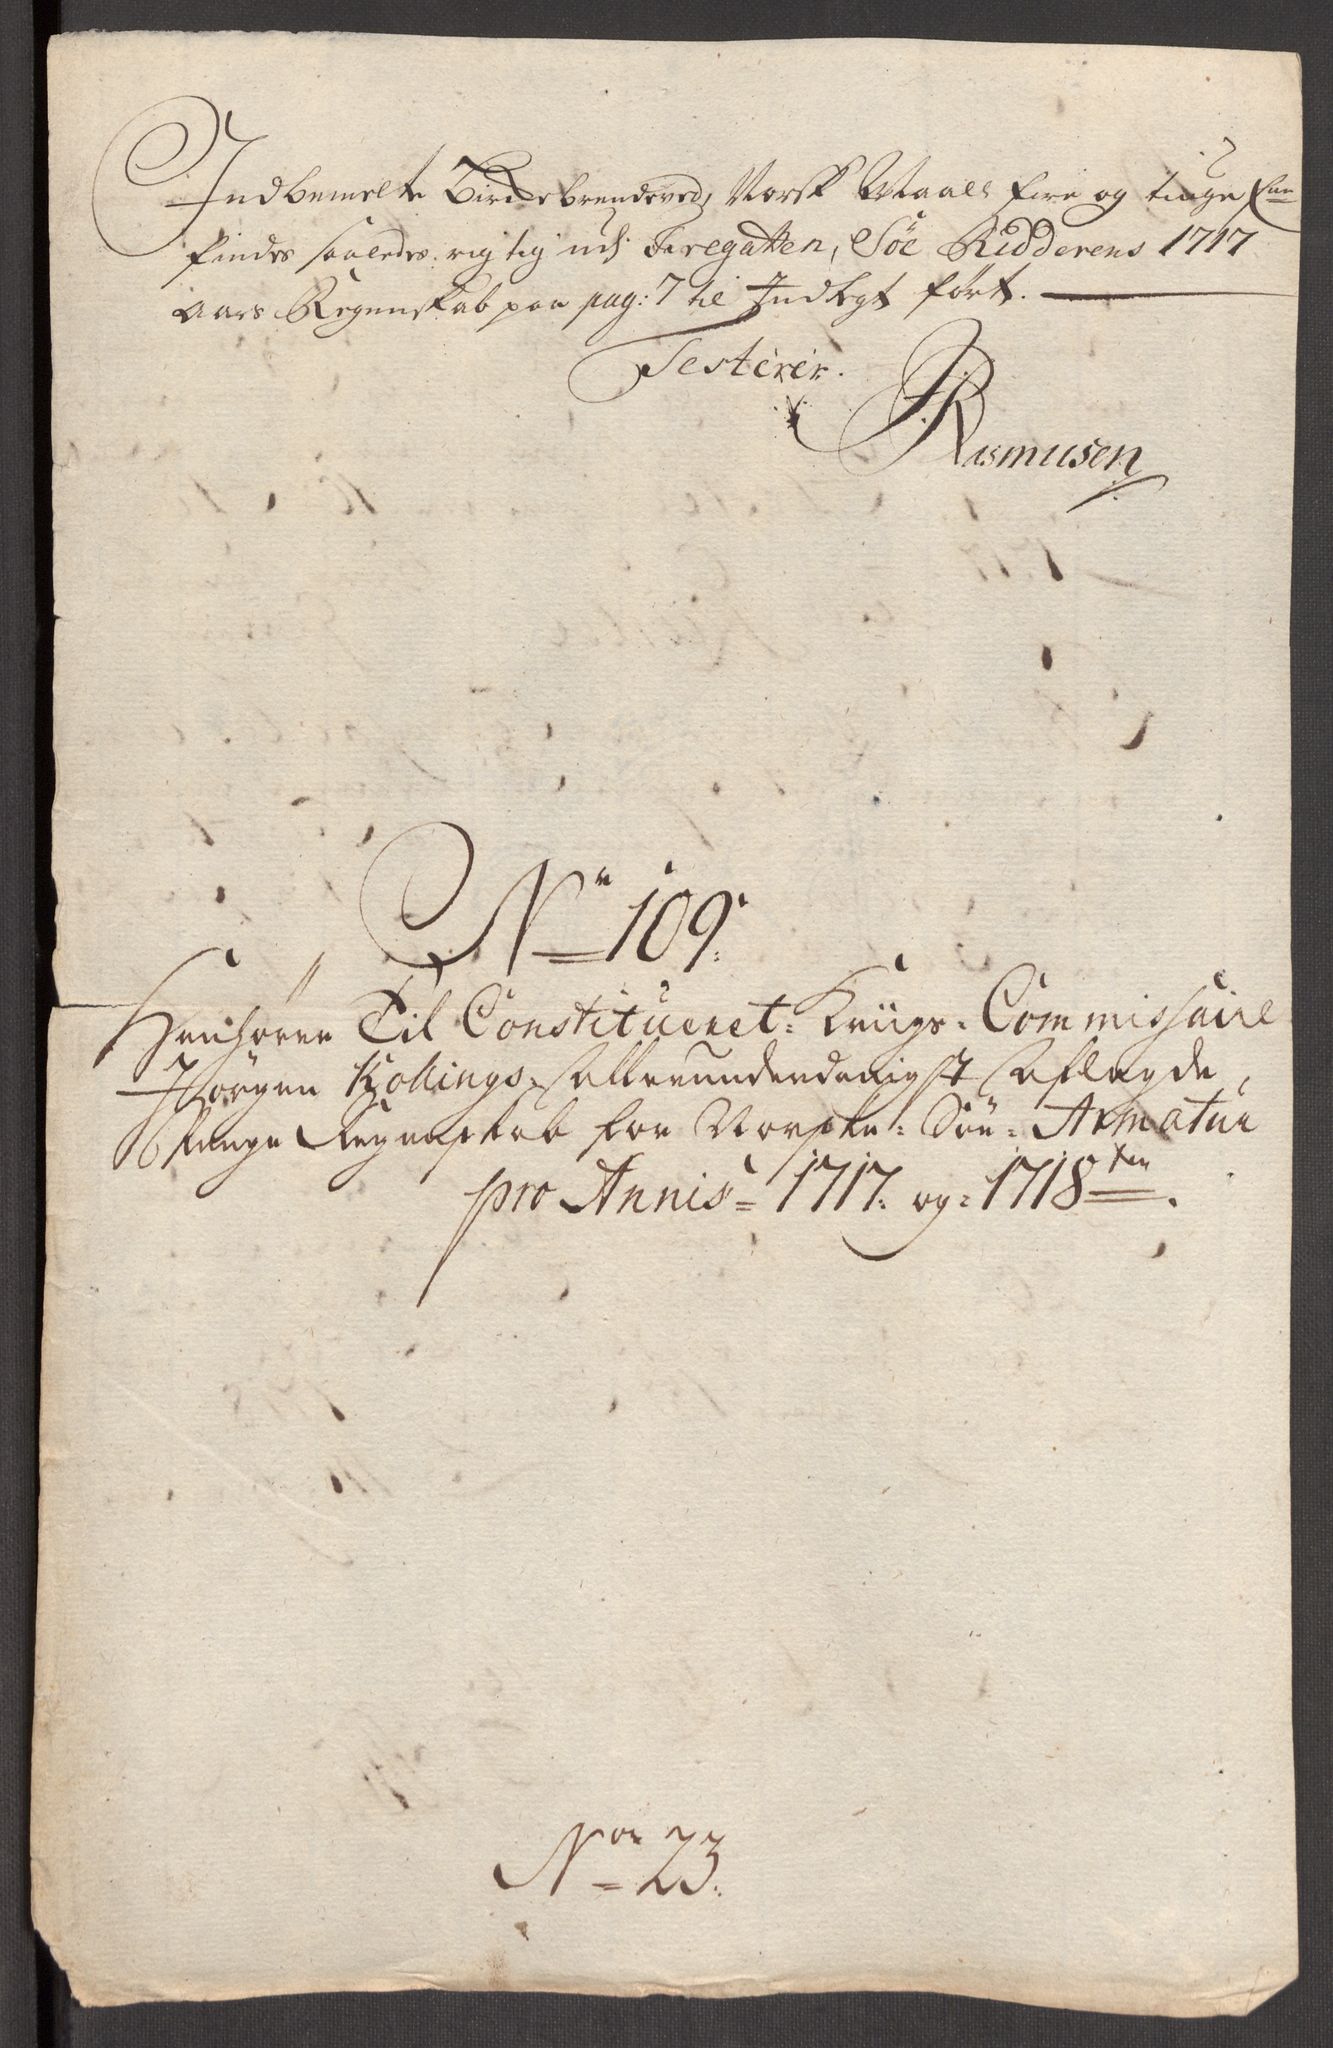 Indbemelte Birkebrendeved, Norsk Maall fire og tiuge
findes saaledes rigtig udi Fregatten, Söe Ridderens 1717
Aars Regenskab paa pag: 7 til Indtegt fört.
Testerer.
Rasmusen
No 109.
Henhörer Til Constitueret: Kriigs-Commissaire
Jörgen Kollings, allerunderdanigst aflagde
Penge Regenskab for Norske: Söe: Armatur
pro Annis 1717. og 1718ten.
Nor 23.